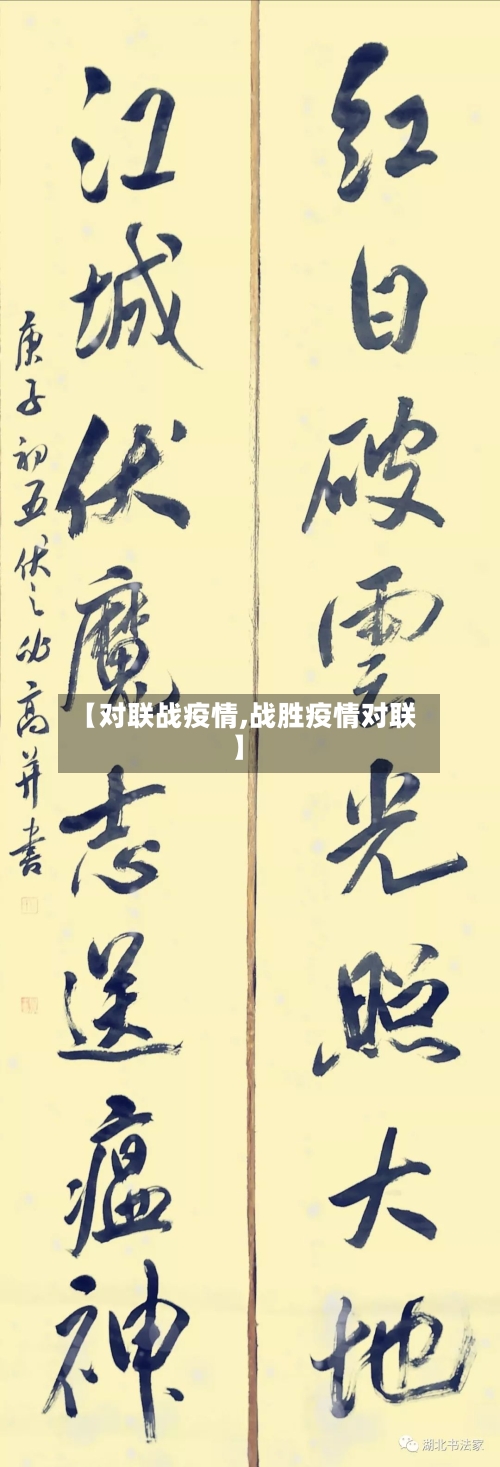 红日破雲光照大地
江城伏魔志送瘟神
庚子初五伏之功高并書
【对联战疫情,战胜疫情对联
】
湖北书法家